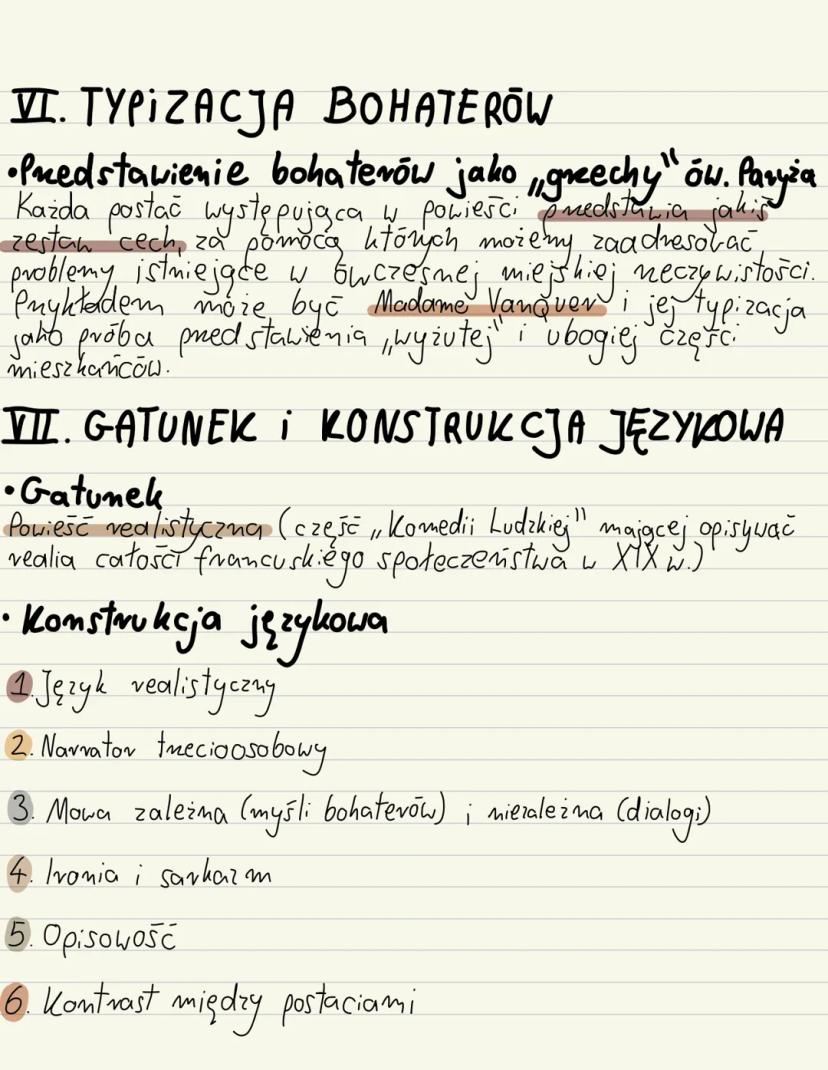 VI. TYPIZACJA BOHATERÓW
•Przedstawienie bohaterów jako „grzechy" ów. Paryża
Każda postać występująca w powieści przedstawia jakiś
zestaw cech, za pomocą których możemy zaadresować
problemy istniejące w ówczesnej miejskiej rzeczywistości.
Przykładem może być Madame Vanquer i jej typizacja
jako próba przedstawienia „wyżutej" i ubogiej części
mieszkańców.
VII. GATUNEK i KONSTRUKCJA JĘZYKOWA
•Gatunek
Powieść realistyczna (część „Komedii Ludzkiej" mającej opisywać
realia całości francuskiego społeczeństwa w XIX w.)
• Konstrukcja językowa
1. Język realistyczny
2. Narrator trzecioosobowy
3. Mowa zależna (myśli bohaterów) i niezależna (dialogi)
4. Ironia i sarkazm
5. Opisowość
6. Kontrast między postaciami